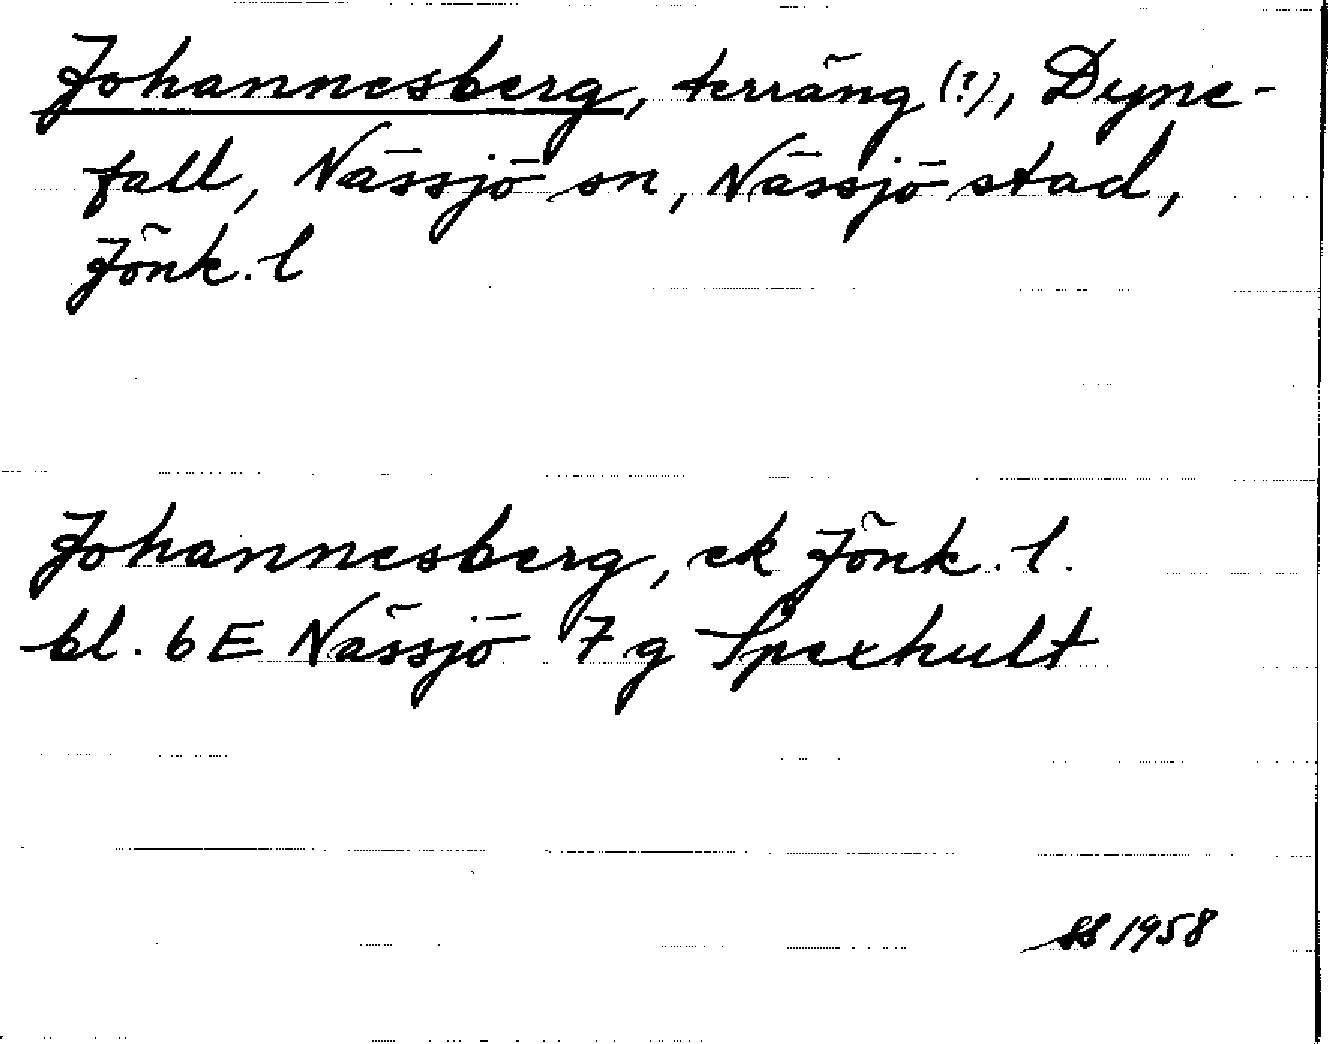 Johannesberg, terräng (?), Dyne-
fall, Nässjö sn, Nässjö stad,
Jönk. l
Johannesberg, ek Jönk. l.
bl. 6E Nässjö 7g Spexhult
SS 1958